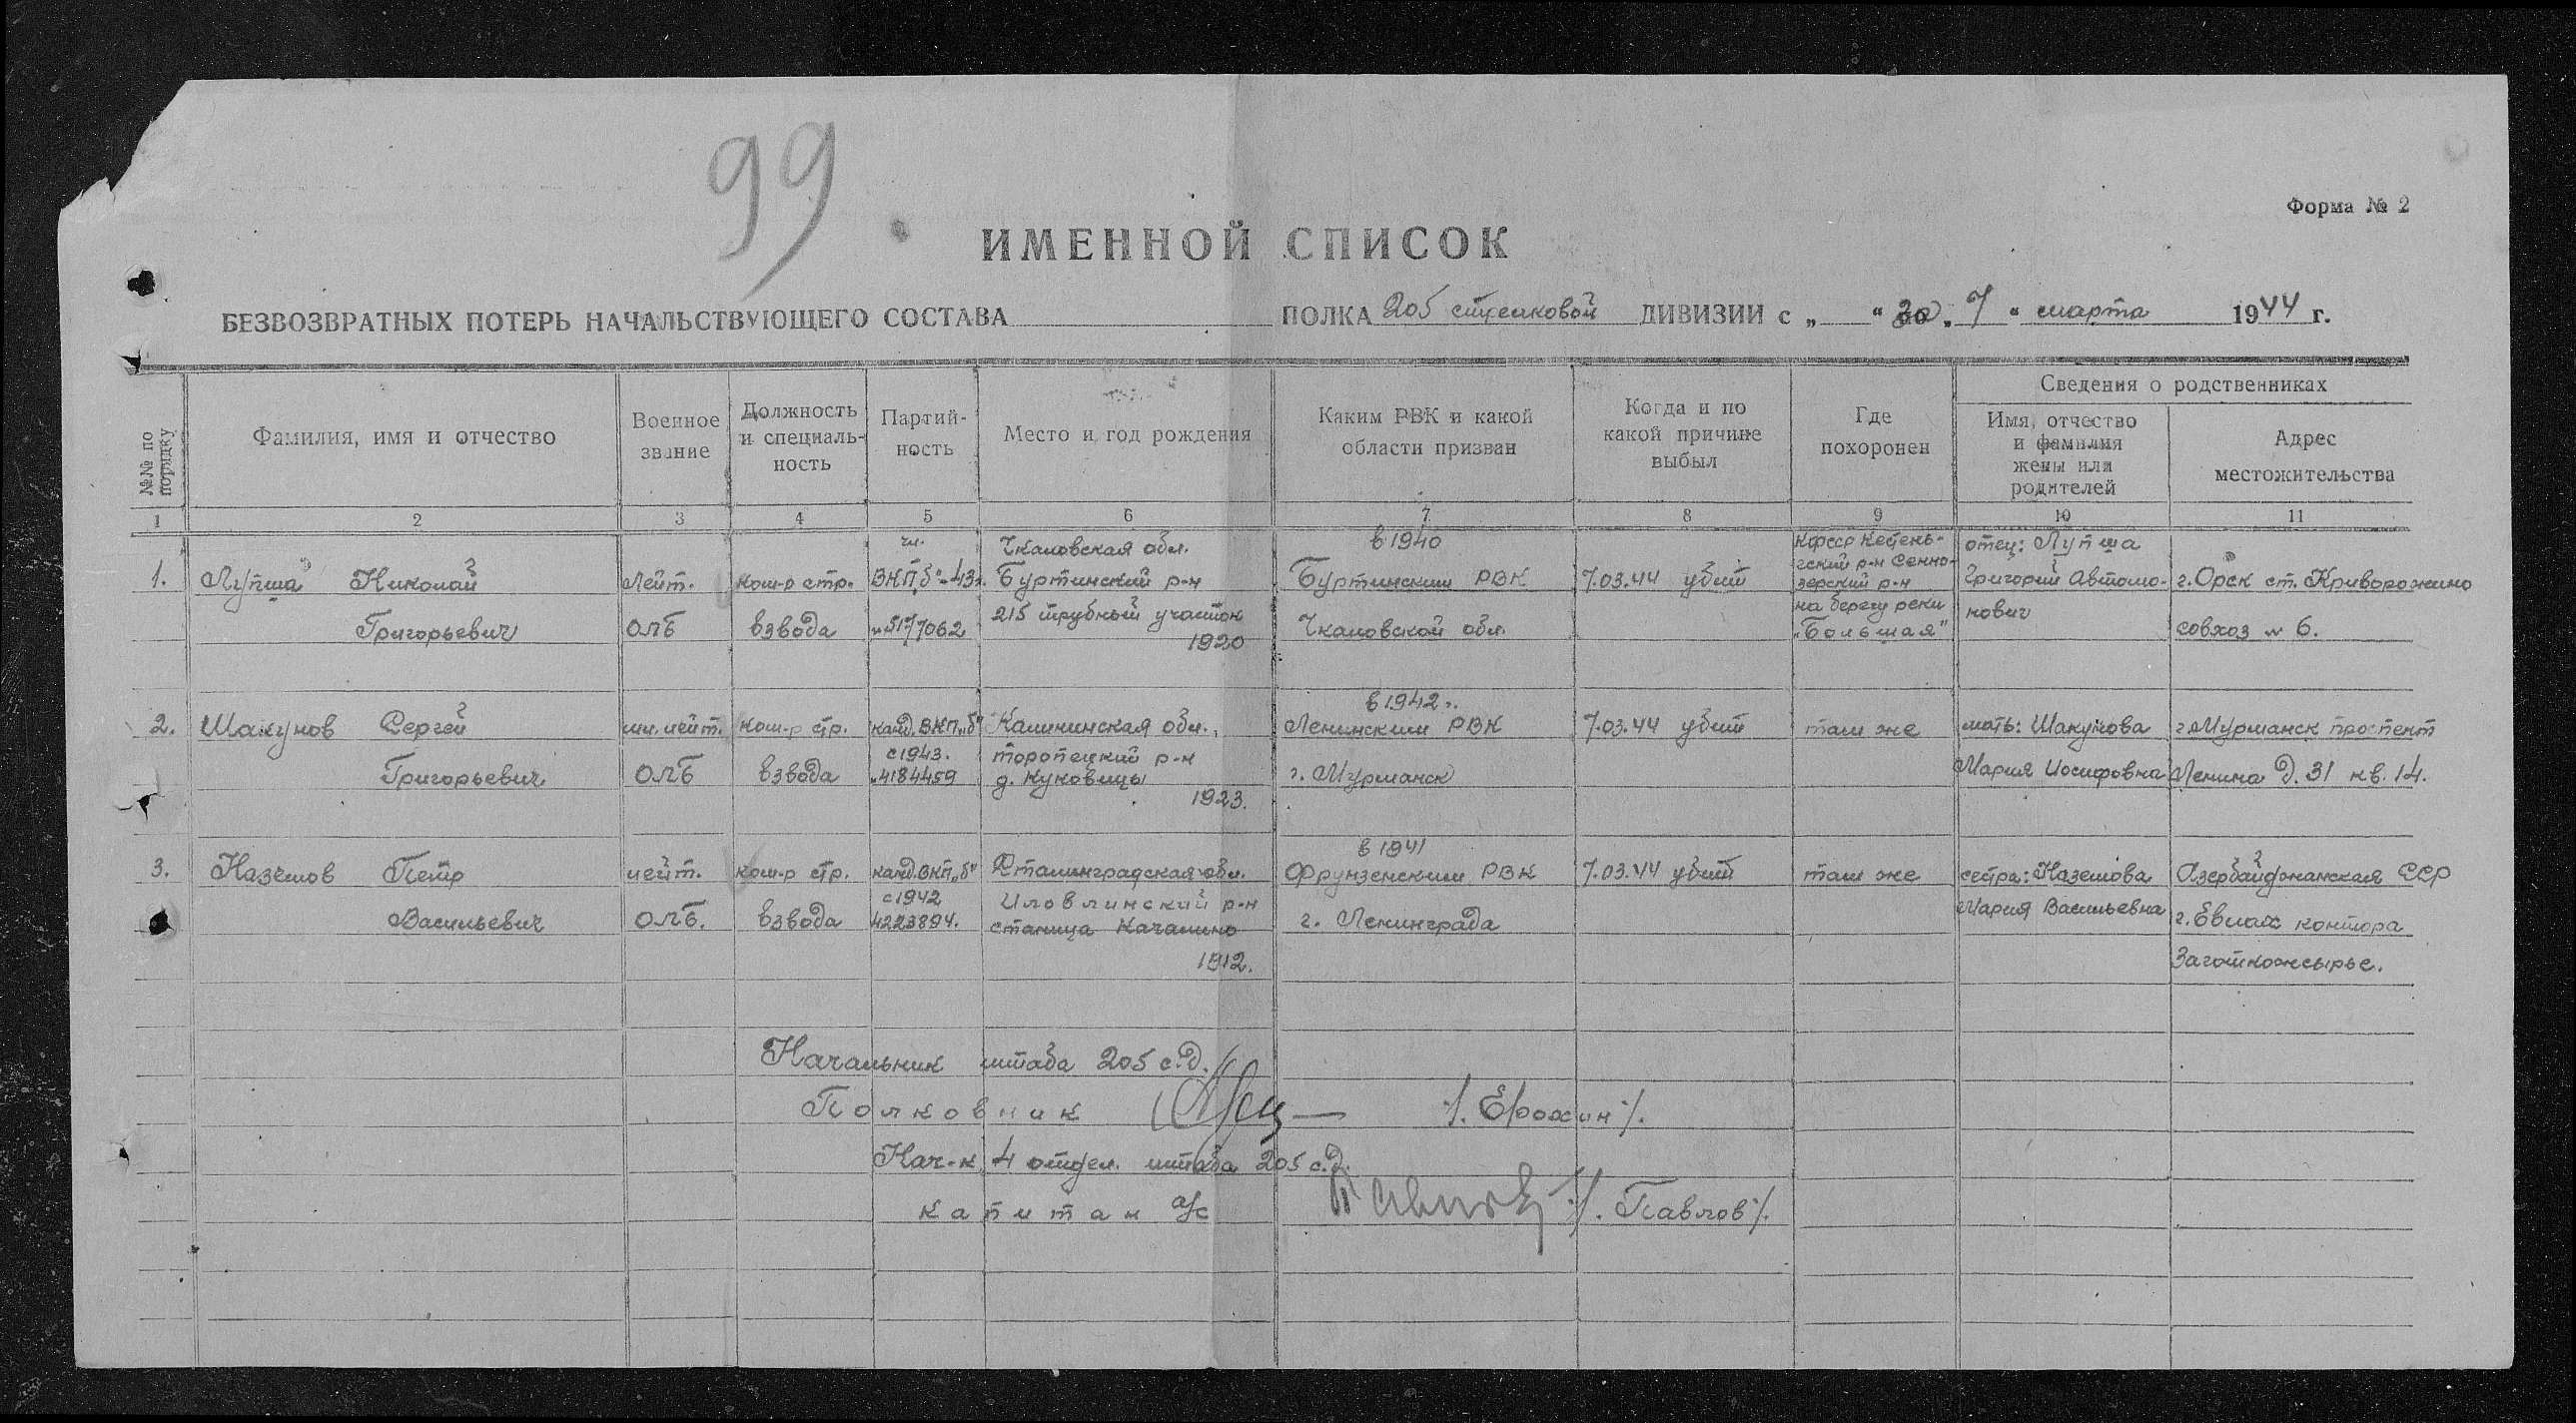 99
Форма № 2
ИМЕННОЙ СПИСОК
БЕЗВОЗВРАТНЫХ ПОТЕРЬ НАЧАЛЬСТВУЮЩЕГО СОСТАВА ПОЛКА 205 стрелковой ДИВИЗИИ с „ “ по „ 7 “ марта 1944 г.
№№ по порядку
Фамилия, имя и отчество
Военное звание
Должность и специальность
Партийность
Место и год рождения
Каким РВК и какой области призван
Когда и по какой причине выбыл
Где похоронен
Сведения о родственниках
Имя, отчество и фамилия жены или родителей
Адрес местожительства
1 2 3 4 5 6 7 8 9 10 11
чл. Чкаловская обл. в 1940 КФССР Кестень- отец: Лупша
1. Лупша Николай Лейт. ком-р стр. ВКПб-43г. Буртинский р-н Буртинским РВК 7.03.44 убит гский р-н Сенно- Григорий Автомо- г. Орск ст. Криворожино
зерский р-н
Григорьевич ОЛБ взвода 5177062 215 трубный участок Чкаловской обл. на берегу реки нович совхоз № 6.
1920 „Большая“
в 1942 г.
2. Шакунов Сергей мл. лейт. ком-р стр. канд. ВКП„б“ Калининская обл., Ленинским РВК 7.03.44 убит там же мать: Шакунова г. Мурманск проспект
с 1943. Торопецкий р-н
Григорьевич ОЛБ взвода 4184459 д. Куковицы г. Мурманск Мария Иосифовна Ленина д. 31 кв. 14.
1923.
в 1941
3. Наземов Петр лейт. ком-р стр. канд. ВКП„б“ Сталинградская обл. Фрунзенским РВК 7.03.44 убит там же сестра: Наземова Азербайджанская ССР
с 1942 Иловлинский р-н
Васильевич ОЛБ. взвода 4223894. станица Качалино г. Ленинграда Мария Васильевна г. Евлах контора
1912. Заготкожсырье.
Начальник штаба 205 с.д.
Полковник /. Ерохин /.
Нач-к 4 отдел. штаба 205 с.д.
капитан а/с Павлов /. Павлов /.